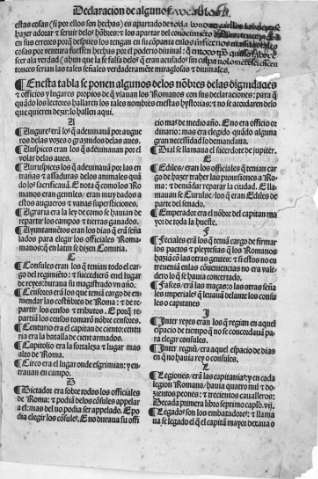 Declaracion de algunos vocablos
estas cosas (si por ellos son hechas) es apartado de toda
hazer adorar y seruir delos hõbres: y los apartar del conocimiẽto
en sus errores porq̃ despues los tenga en su cõpañia enlos
cosas por ventura fuessen hechas por el poderio diuinal: q̃
ser ala verdad (ahun que la se falsa delos q̃ eran
tonces serian las tales señales verdaderamẽte miraglosas y diuinales.
¶ En esta tabla se ponen algunos delos nõbres delas dignidades
y officios y lugares propios de q̃ vsauan los Romanos con sus declaraciones: para q̃
quãdo los lectores hallarẽ los tales nombres enestas hystorias: y no se acordaren delo
que quieren dezir: lo hallen aqui.
A
¶ Augure era lo q̃ adeuinauã por augue
ros delas vozes o graznidos delas aues.
¶ Auspices eran los q̃ adeuinauan por el
volar delas aues.
¶ Auruspices los q̃ adeuinauã por las en
trañas y assaduras delas animales quã
do los sacrificauã. E nota q̃ como los Ro
manos eran gentiles: eran muy dados a
estos augueros y vanas supersticiones.
¶ Agraria era la ley de como se hauian de
repartir los campos y tierras ganados.
¶ Ayuntamẽtos eran los dias q̃ erã seña
lados para elegir los officiales Roma
manos: q̃ en latin se dizen Comicia.
C
¶ Consules eran los q̃ tenian todo el car
go del regimiẽto: y succediero enel lugar
de reyes: duraua su magistrado vn año.
¶ Censores erã los que teniã cargo de en
mendar las costũbres de Roma: y de re
partir los censos y tributos. E porq̃ re
partiã los censos tomarõ nõbre censores.
¶ Centurio era el capitan de ciento: centu
ria era la batalla de ciento armados.
¶ Capitolio era la fortaleza y lugar mas
alto de Roma.
¶ Circo era el lugar onde esgrimian: y en
trauan en campo.
D
¶ Dictador era sobre todos los officiales
de Roma: y podia delos cõsules appelar
a el: mas del no podia ser appelado. E po
dia elegir los cõsules. E no duraua su offi
cio mas de medio año. E no era officio or
dinario: mas era elegido quãdo alguna
gran necessidad lo demandaua.
¶ Dial se llamaua el sacerdote de jupiter.
E
¶ Ediles: eran los officiales q̃ tenian car
go de hazer traher las prouisiones a Ro
ma: y de mãdar reparar la ciudad. E lla
mauan se Curules: los q̃ eran Ediles de
parte del senado.
¶ Emperador era el nõbre del capitan ma
yor de toda la hueste.
F
¶ Feciales erã los q̃ teniã cargo de firmar
los pactos y pleytesias q̃ los Romanos
haziã cõ las otras gentes: y si estos no en
treueniã enlas cõcuencias no era vale
dero lo q̃ se hauia concertado.
¶ Fasces: erã las maças: o las otras señas
los imperiales q̃ leuauã delante los consu
les o capitanes
I
¶ Inter reyes eran los q̃ regian en aquel
espacio de tiempo q̃ no se concordauã pa
ra elegir consules.
¶ Inter regnũ: era aquel espacio de dias
en q̃ no hauia rey o consules.
L
¶ Legiones: erã las capitanias: y en cada
legion Romana: hauia quatro mil y do
zientos peones: y trezientos caualleros:
Decada primera libro septimo capl̃o. vij.
¶ Legados son los embaxadores: y llama
ua se legado el q̃ el capitã mayor dexaua o